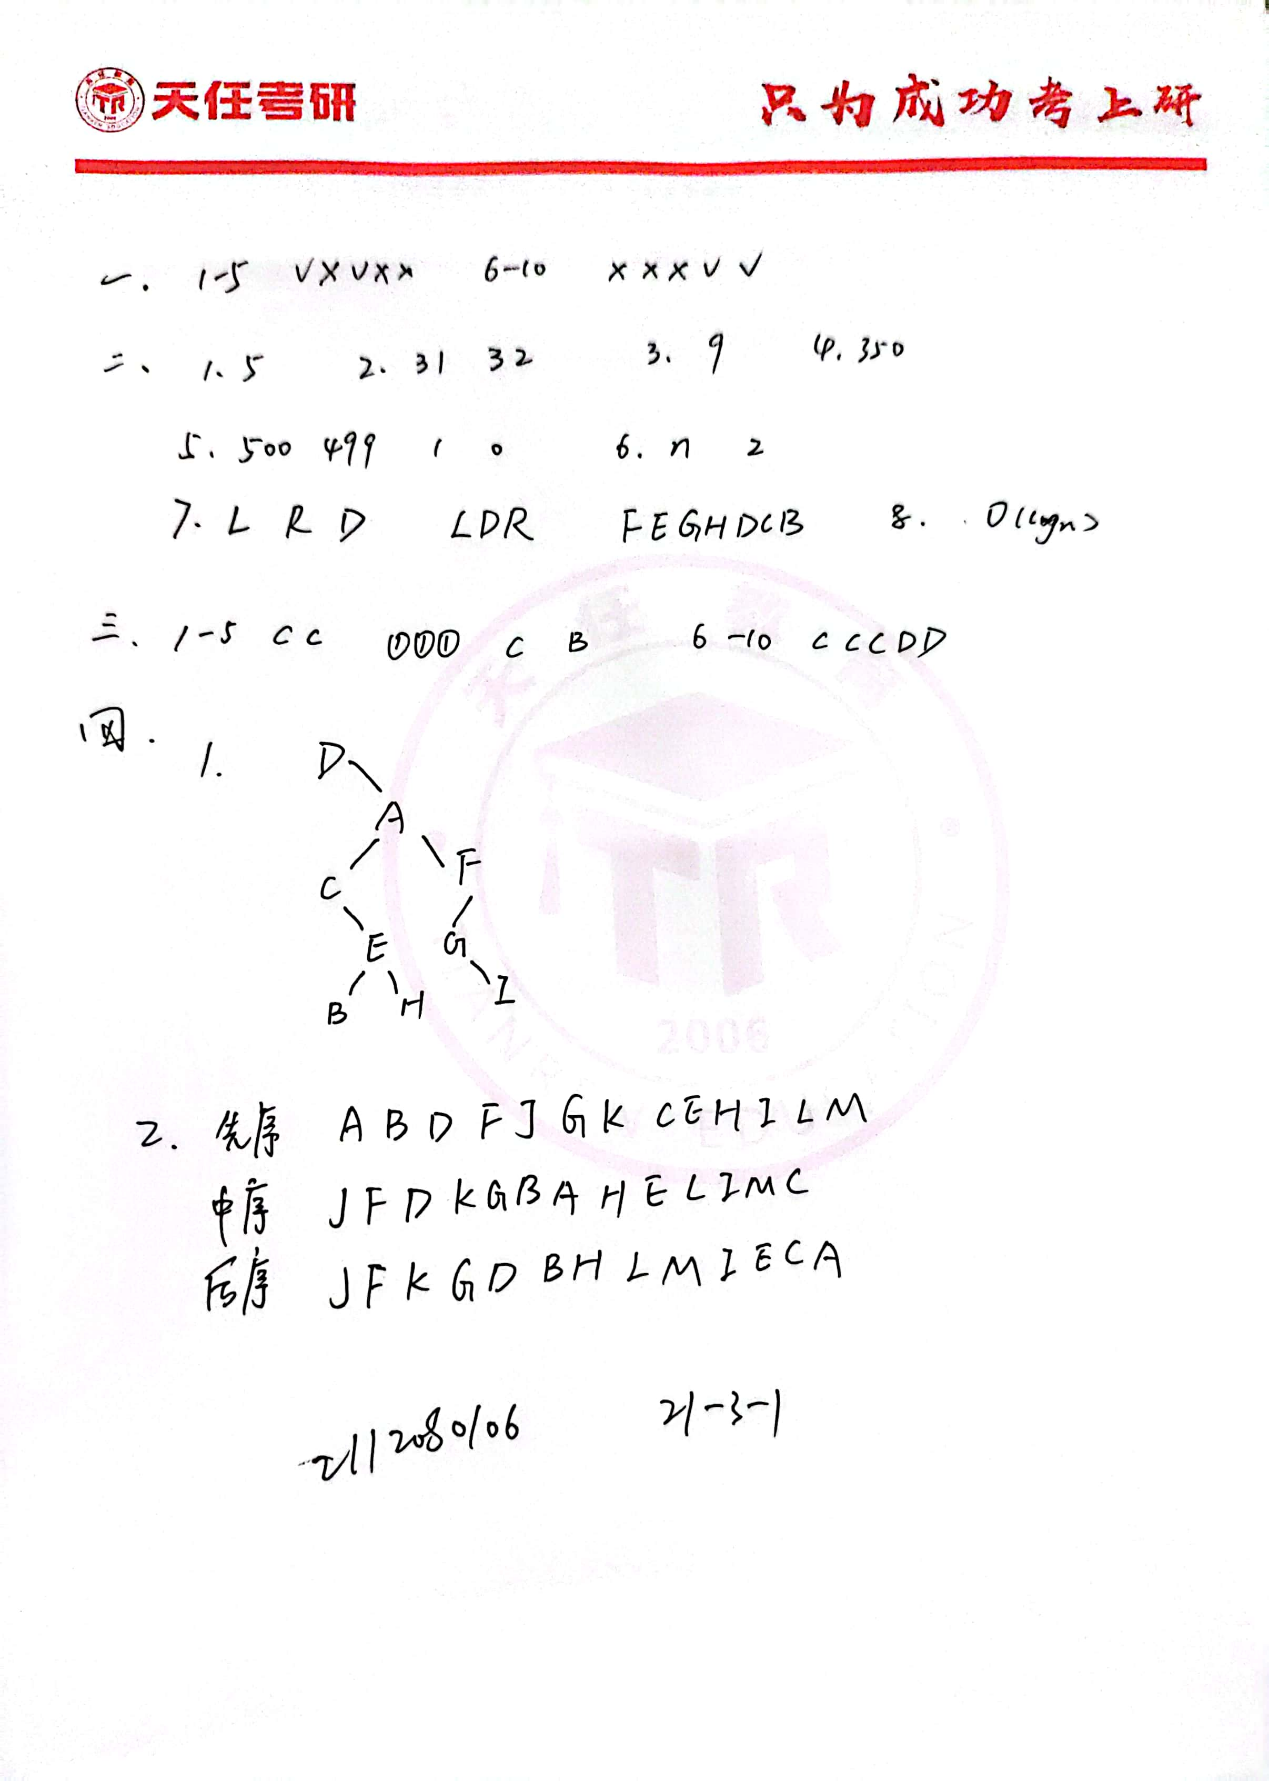 天任考研 只为成功考上研
一. 1-5 √×√×× 6-10 ×××√√
二、 1. 5 2. 31 32 3. 9 4. 350
5. 500 499 1 0 6. n 2
7. L R D LDR FEGHDCB 8. O(logn)
三、 1-5 C C ①①① C B 6-10 C C C D D
四. 1. D
A
C F
E G
B H I
2. 先序 A B D F J G K C E H I L M
中序 J F D K G B A H E L I M C
后序 J F K G D B H L M I E C A
2112080106 21-3-1
2006